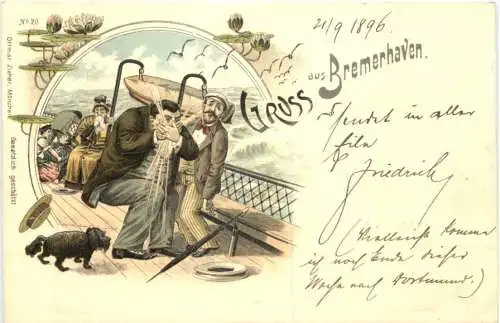 No. 20.
21/9 1896.
Gruss
aus Bremerhaven.
Ottmar Zieher, München
Gesetzlich geschützt
Sendet in aller
Eile
Friedrich
(Vielleicht komme
ich noch Ende dieser
Woche nach Dortmund.)